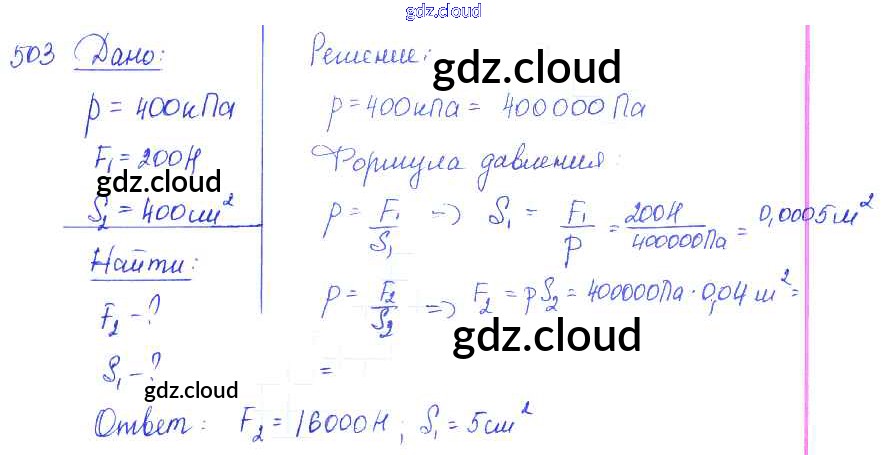 gdz.cloud
503 Дано:
p = 400кПа
F₁ = 200Н
gdz.cloud
S₂ = 400см²
Найти:
F₂ - ?
S₁ - ?
gdz.cloud
Решение:
gdz.cloud
p = 400кПа = 400000 Па
Формула давления:
p = F₁/S₁ => S₁ = F₁/p = 200Н/400000Па = 0,0005м²
p = F₂/S₂ => F₂ = pS₂ = 400000Па · 0,04 м² =
gdz.cloud
=
Ответ: F₂ = 16000Н; S₁ = 5см²